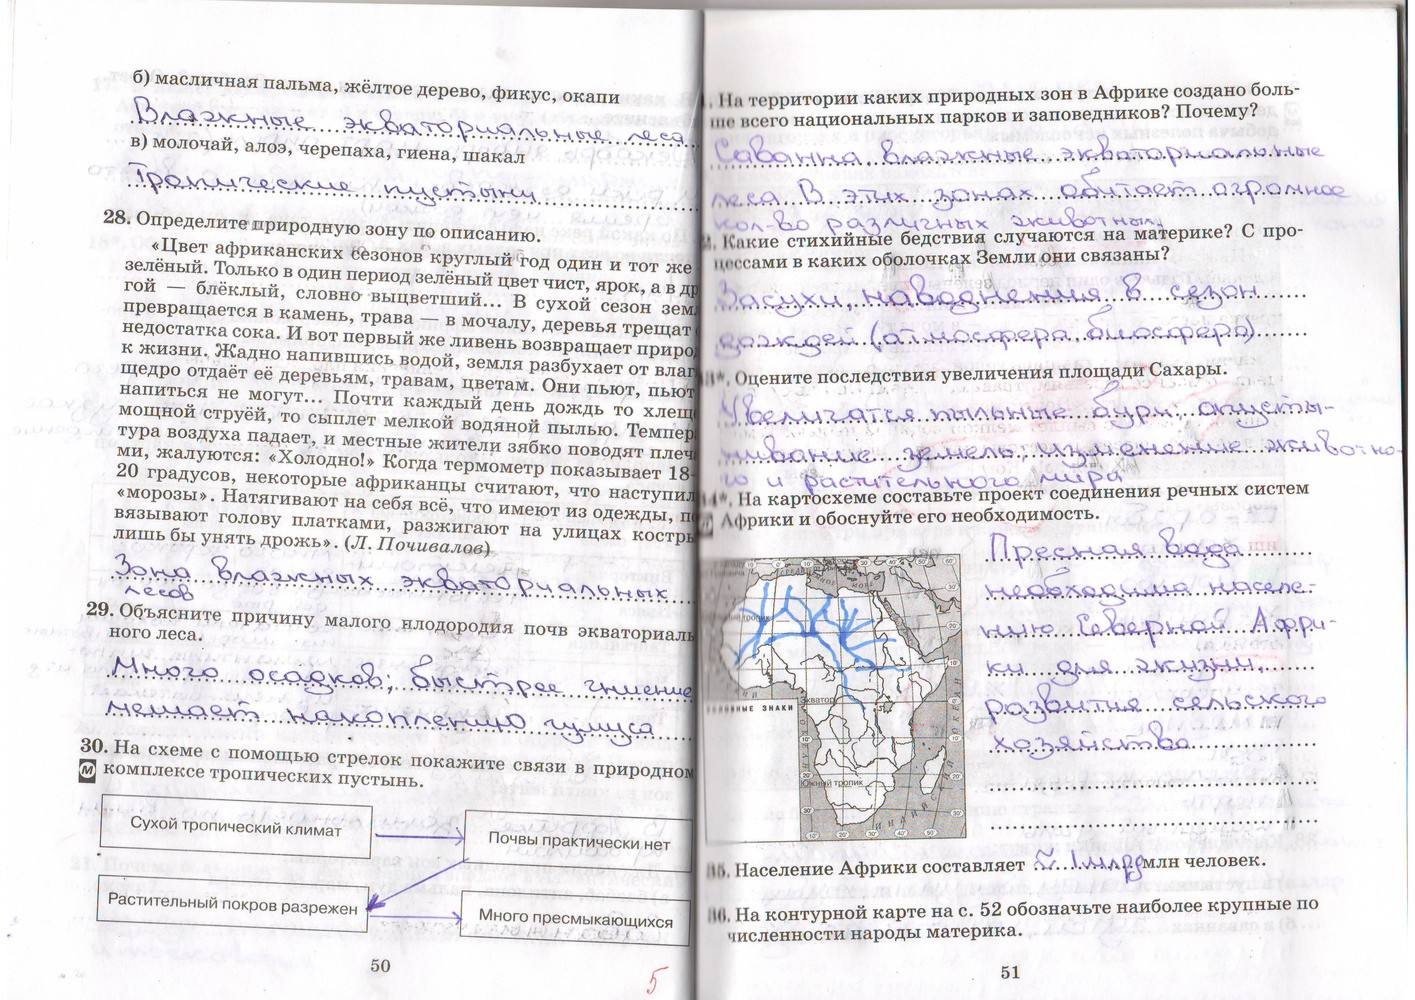 б) масличная пальма, жёлтое дерево, фикус, окапи
Влажные экваториальные леса
в) молочай, алоэ, черепаха, гиена, шакал
Тропические пустыни
28. Определите природную зону по описанию.
«Цвет африканских сезонов круглый год один и тот же
зелёный. Только в один период зелёный цвет чист, ярок, а в др
гой — блёклый, словно выцветший... В сухой сезон зем
превращается в камень, трава — в мочалу, деревья трещат
недостатка сока. И вот первый же ливень возвращает приро
к жизни. Жадно напившись водой, земля разбухает от влаг
щедро отдаёт её деревьям, травам, цветам. Они пьют, пьют
напиться не могут... Почти каждый день дождь то хлещ
мощной струёй, то сыплет мелкой водяной пылью. Темпер
тура воздуха падает, и местные жители зябко поводят плеч
ми, жалуются: «Холодно!» Когда термометр показывает 18-
20 градусов, некоторые африканцы считают, что наступил
«морозы». Натягивают на себя всё, что имеют из одежды, по
вязывают голову платками, разжигают на улицах костры
лишь бы унять дрожь». (Л. Почивалов)
Зона влажных экваториальных
лесов
29. Объясните причину малого плодородия почв экваториаль
ного леса.
Много осадков, быстрее гниение
мешает накоплению гумуса
30. На схеме с помощью стрелок покажите связи в природном
М комплексе тропических пустынь.
Сухой тропический климат
Почвы практически нет
Растительный покров разрежен
Много пресмыкающихся
50
5
1. На территории каких природных зон в Африке создано боль-
ше всего национальных парков и заповедников? Почему?
Саванна влажные экваториальные
леса. В этих зонах обитает огромное
кол-во различных животных
2. Какие стихийные бедствия случаются на материке? С про-
цессами в каких оболочках Земли они связаны?
Засухи, наводнения в сезон
дождей (атмосфера, биосфера)
3*. Оцените последствия увеличения площади Сахары.
Увеличатся пыльные бури, опусты-
нивание земель, изменение животно-
го и растительного мира
4*. На картосхеме составьте проект соединения речных систем
Африки и обоснуйте его необходимость.
Пресная вода
необходима населе-
нию Северной Афри-
ки для жизни,
развития сельского
хозяйства
Экватор
УСЛОВНЫЕ ЗНАКИ
Южный тропик
ИНДИЙСКИЙ ОКЕАН
35. Население Африки составляет 1 млрд млн человек.
36. На контурной карте на с. 52 обозначьте наиболее крупные по
численности народы материка.
51